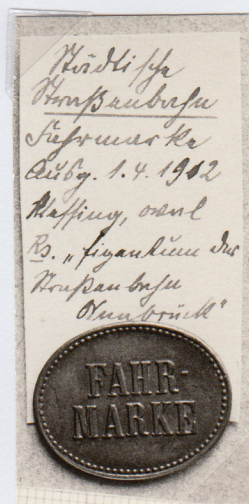 Städtische
Straßenbahn
Fahrmarke
Ausg. 1.4.1912
Messing, oval
Rs. „Eigentum der
Straßenbahn
Innsbruck"
FAHR-
MARKE